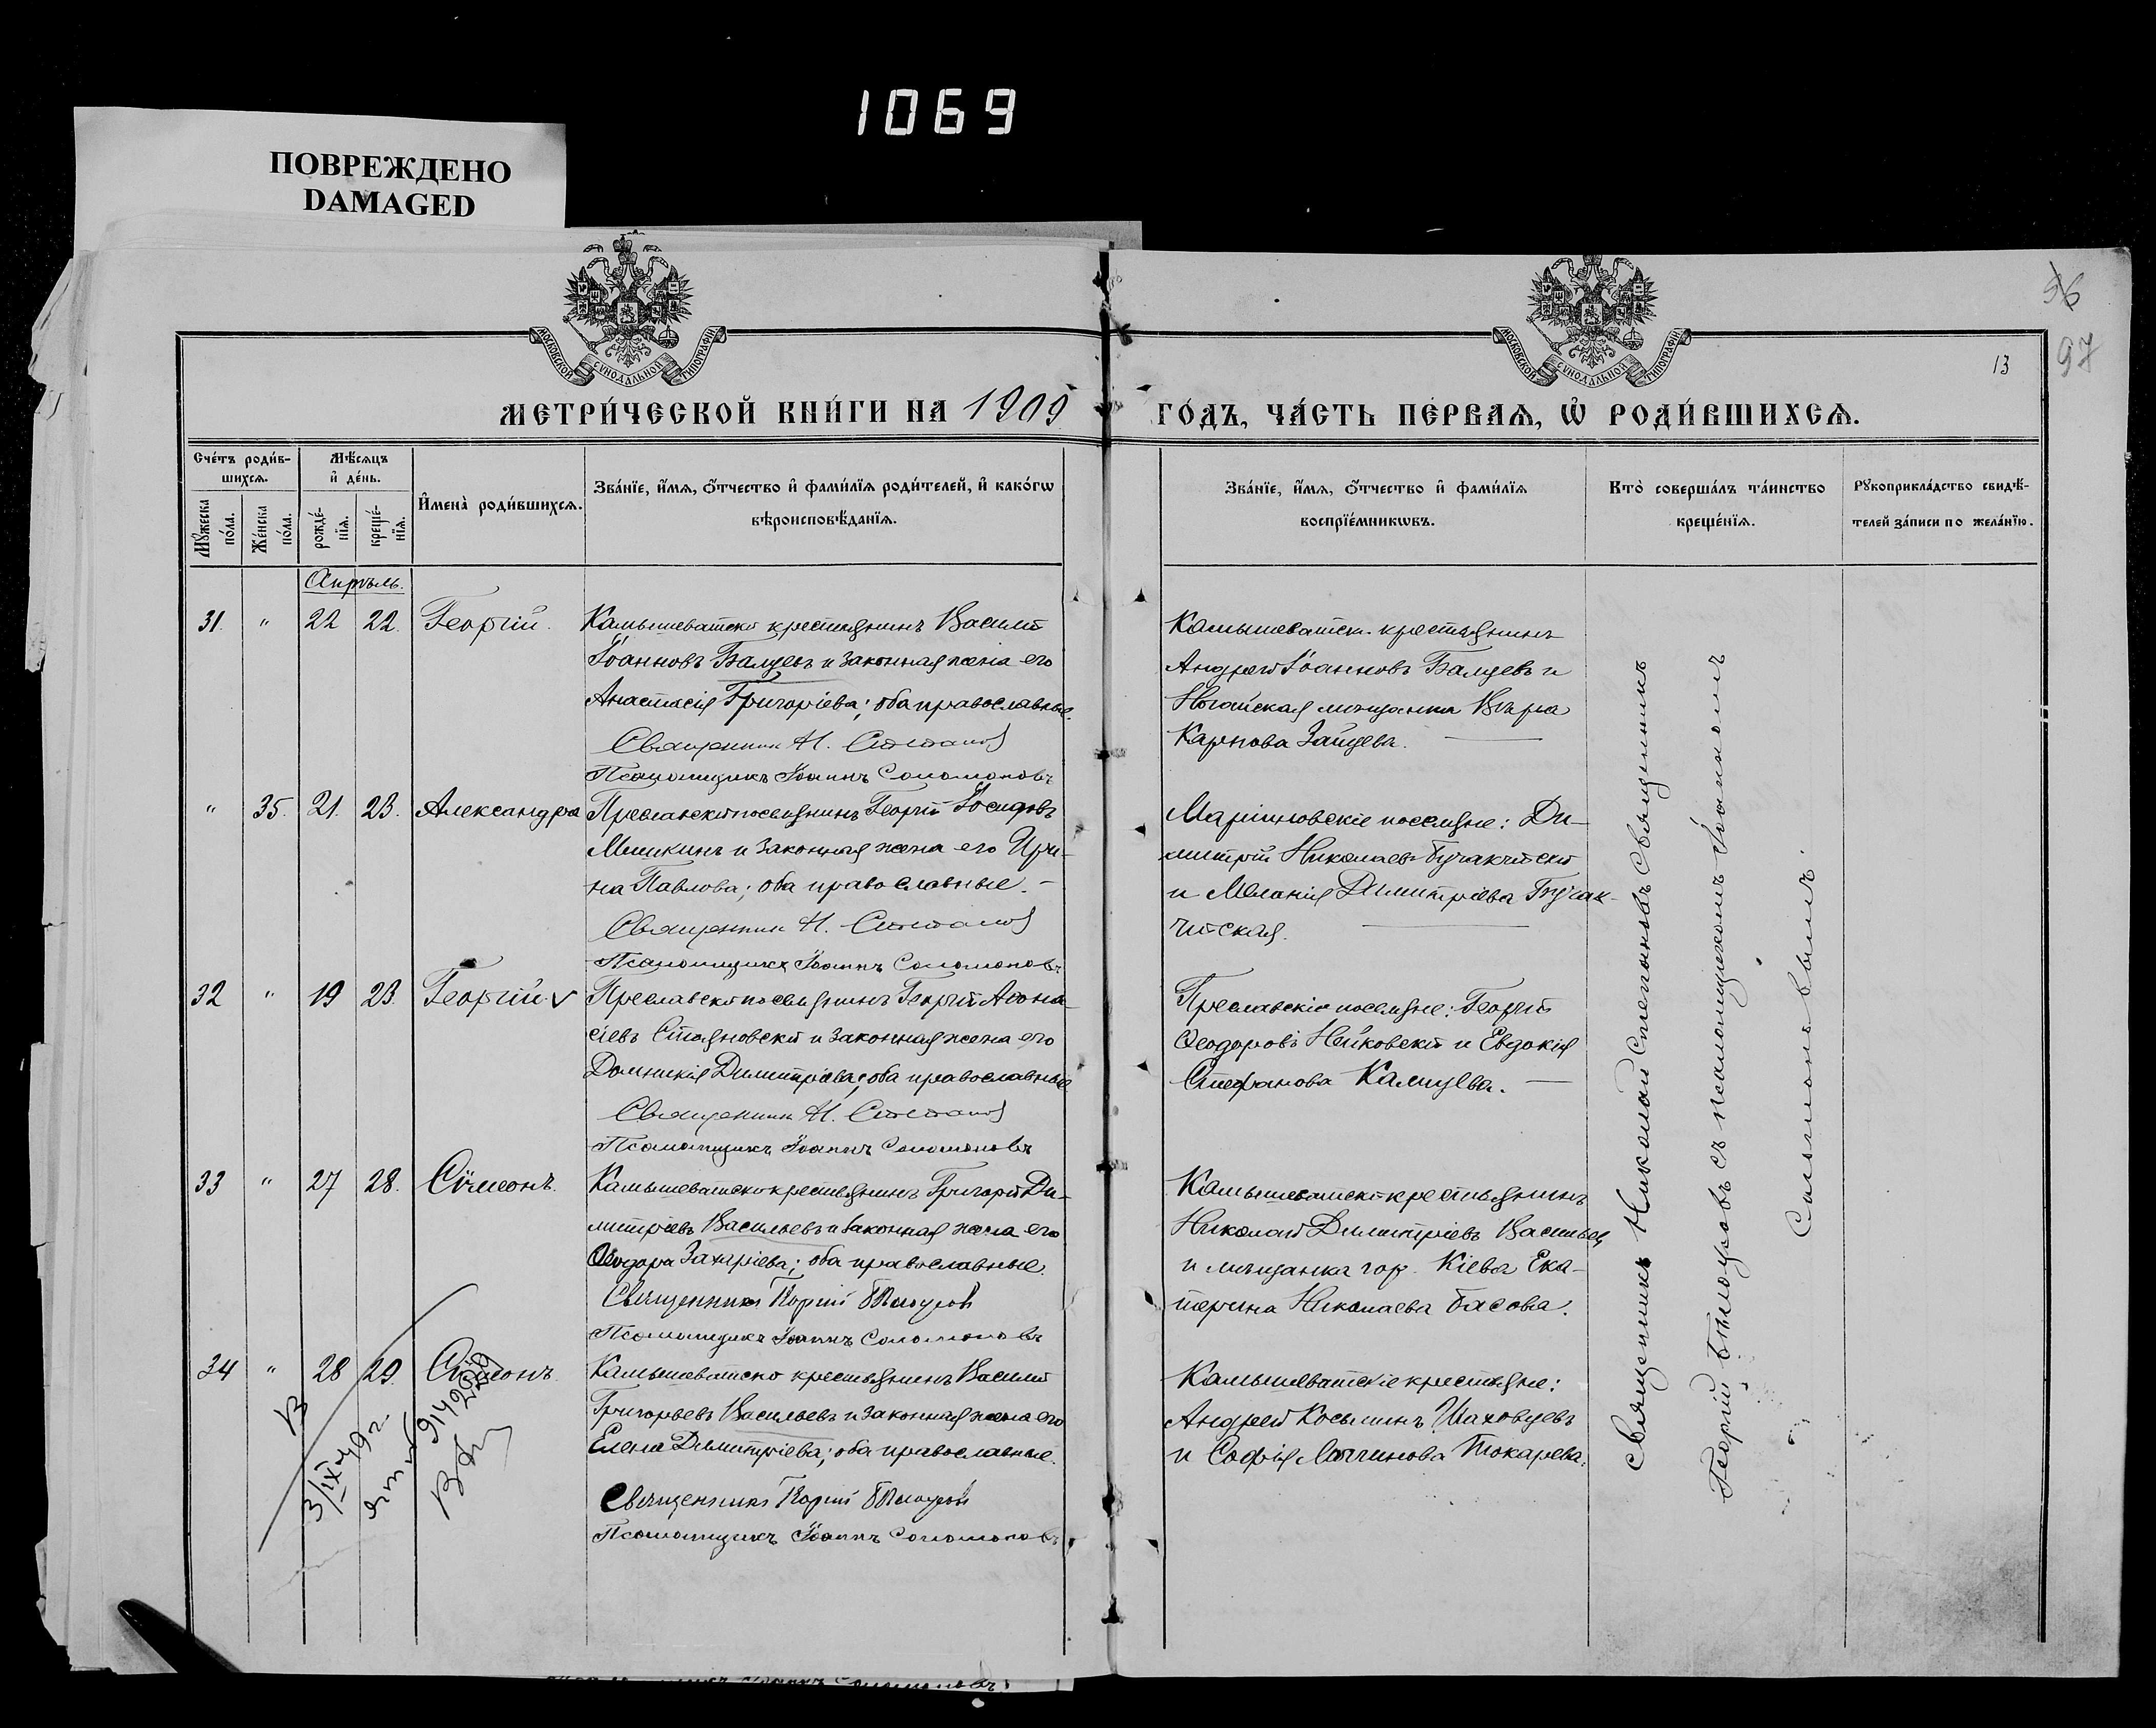 1069
ПОВРЕЖДЕНО
DAMAGED
МОСКОВСКОЙ СѴНОДАЛЬНОЙ ТИПОГРАФІИ
МОСКОВСКОЙ СѴНОДАЛЬНОЙ ТИПОГРАФІИ
96
97
13
МЕТРИ́ЧЕСКОЙ КНИ́ГИ НА 1909
ГО́ДЪ, ЧА́СТЬ ПЕ́РВАѦ, Ѡ҆ РОДИ́ВШИХСѦ.
Сче́тъ роди́в-
шихсѧ.
Мꙋ́жеска по́ла.
Же́нска по́ла.
Мѣ́сѧцъ
и҆ де́нь.
рожде́-
нїѧ.
креще́-
нїѧ.
И҆мена̀ роди́вшихсѧ.
Зва́нїе, и҆́мѧ, ѻ҆́тчество и҆ фами́лїѧ роди́телей, и҆ како́гѡ
вѣроисповѣ́данїѧ.
Зва́нїе, и҆́мѧ, ѻ҆́тчество и҆ фами́лїѧ
воспрїе́мникѡвъ.
Кто̀ соверша́лъ та́инство
креще́нїѧ.
Рꙋкоприкла́дство свидѣ́-
телей за́писи по жела́нїю.
Апрѣль.
31. " 22 22. Георгій.
Камышеватскій крестьянинъ Василій
Іоанновъ Балцевъ и законная жена его
Анастасія Григоріева; оба православные.
Священник Н. Степанов
Псаломщикъ Іоаннъ Соломоновъ
Камышеватск. крестьянинъ
Андрей Іоанновъ Балцевъ и
Ногайская мѣщанка Вѣра
Карпова Зайцева.
" 35. 21. 23. Александра
Преславскій поселянинъ Георгій Іосифовъ
Мишкинъ и законная жена его Ири-
на Павлова; оба православные.
Священник Н. Степанов
Псаломщикъ Іоаннъ Соломоновъ
Маріановскіе поселяне: Ди-
митрій Николаевъ Бучакчійскій
и Меланія Димитріева Бучак-
чійская.
32 " 19 23. Георгій. v
Преславскій поселянинъ Георгій Аѳана-
сіевъ Стояновскій и законная жена его
Домникія Димитріева; оба православные
Священник Н. Степанов
Псаломщикъ Іоаннъ Соломоновъ
Преславскіе поселяне: Георгій
Ѳеодоровъ Нейковскій и Евдокія
Стефанова Калицева.
33 " 27 28. Сѵмеонъ.
Камышеватскій крестьянинъ Григорій Ди-
митріевъ Васильевъ и законная жена его
Ѳеодора Захаріева; оба православные.
Священникъ Георгій Бѣлоусов
Псаломщикъ Іоаннъ Соломоновъ
Камышеватскій крестьянинъ
Николай Димитріевъ Васильев
и мѣщанка гор. Кіева Ека-
терина Николаева Басова.
34 " 28 29. Сѵмеонъ.
Камышеватскій крестьянинъ Василій
Григорьевъ Васильевъ и законная жена его
Елена Димитріева; оба православные.
Священникъ Георгій Бѣлоусов
Псаломщикъ Іоаннъ Соломоновъ
Камышеватскіе крестьяне:
Андрей Косьминъ Шаховцевъ
и Софія Токарева.
3/IX-49 г.
Священникъ Николай Степановъ Священникъ
Георгій Бѣлоусовъ съ псаломщикомъ Іоанномъ
Соломоновымъ.